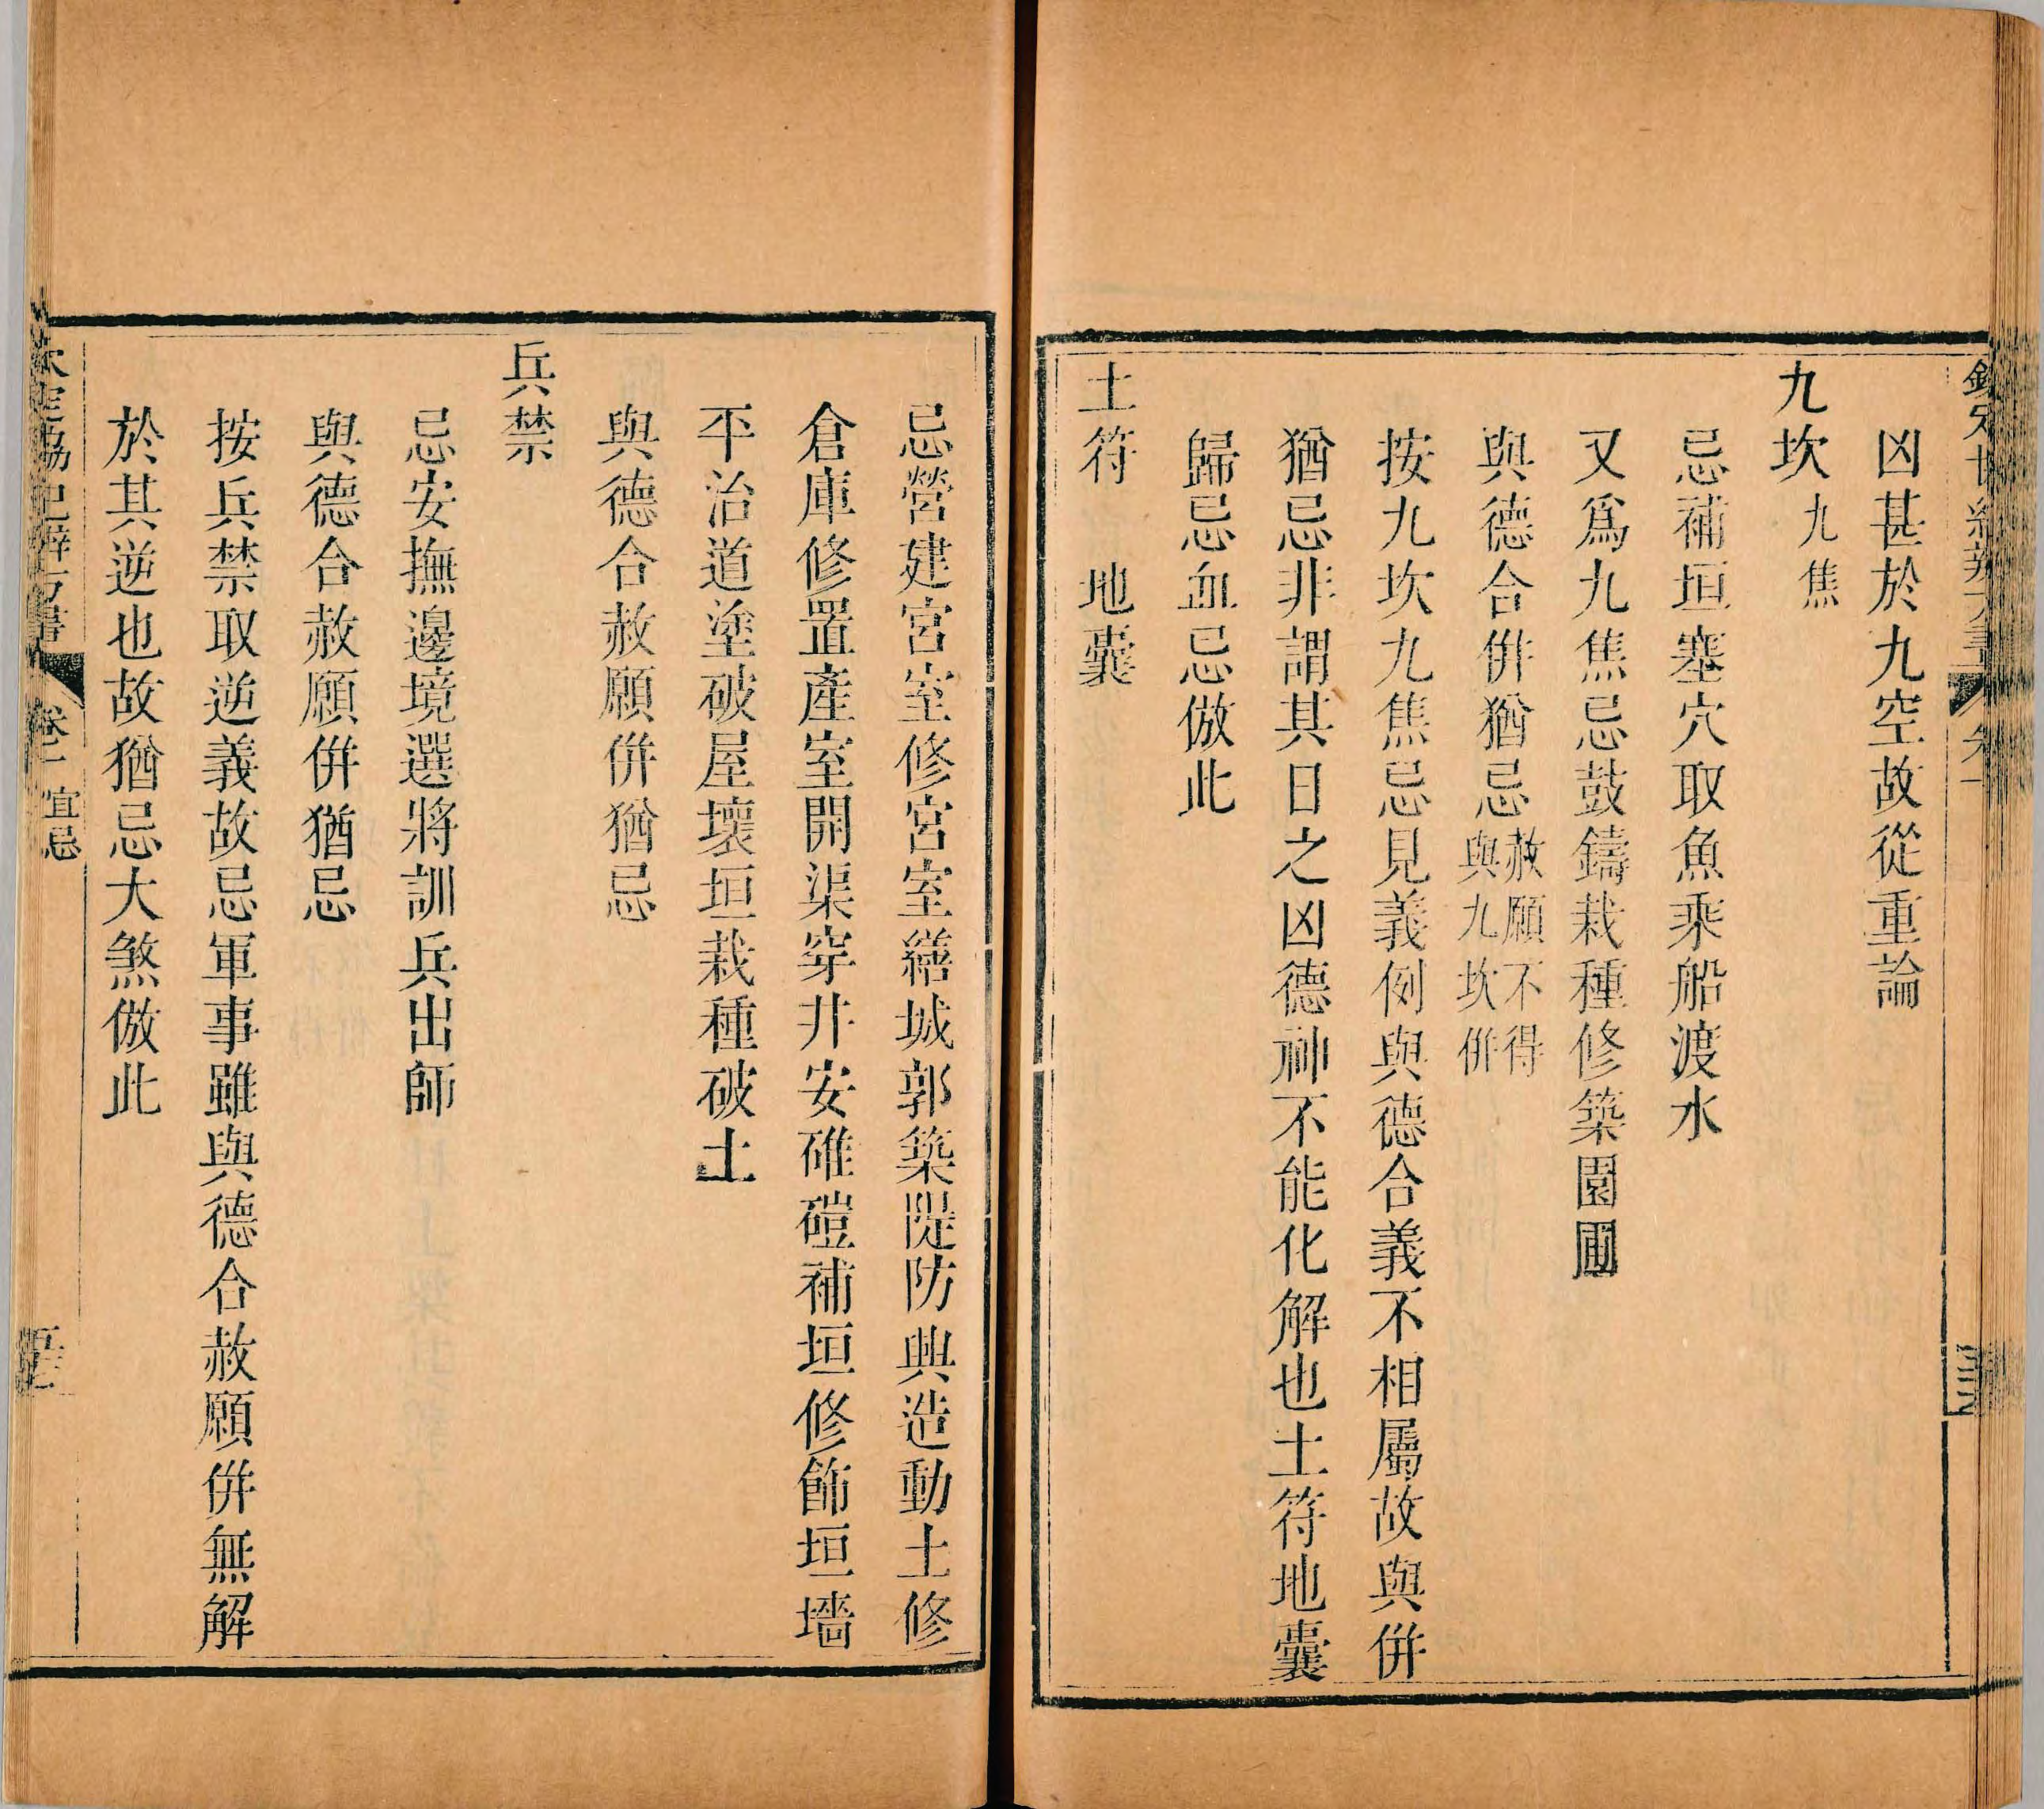 凶甚於九空故從重論
九坎九焦
忌補垣塞穴取魚乘船渡水
又爲九焦忌鼓鑄栽種修築園圃
與德合併猶忌赦願不得與九坎併
按九坎九焦忌見義例與德合義不相屬故與併
猶忌非謂其日之凶德神不能化解也土符地囊
歸忌血忌倣此
土符　地囊
忌營建宮室修宮室繕城郭築隄防興造動土修
倉庫修置產室開渠穿井安碓磑補垣修飾垣墻
平治道塗破屋壞垣栽種破土
與德合赦願併猶忌
兵禁
忌安撫邊境選將訓兵出師
與德合赦願併猶忌
按兵禁取逆義故忌軍事雖與德合赦願併無解
於其逆也故猶忌大煞倣此
欽定協紀辨方書　宜忌